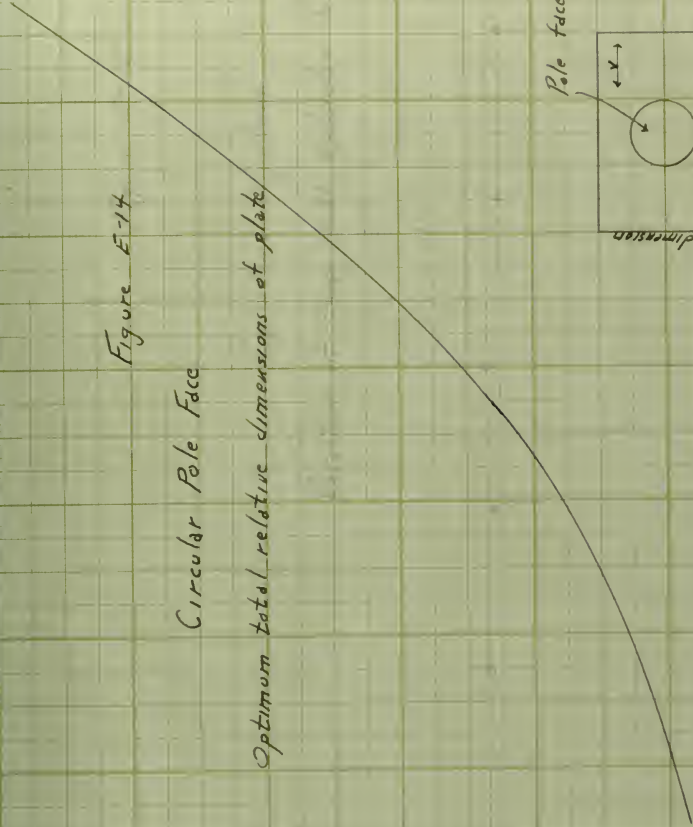 Figure E-14
Circular Pole Face
Optimum total relative dimensions of plate
Pole face
v
dimension